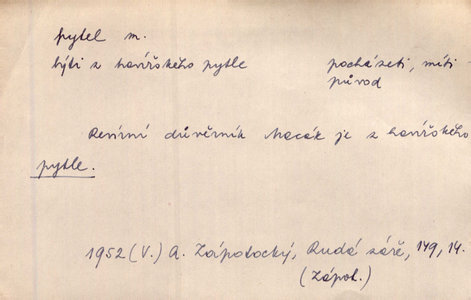 pytel m.
býti z havířského pytle pocházeti, míti
původ
Revírní důvěrník Macák je z havířského
pytle.
1952 (V.) A. Zápotocký, Rudá záře, 149, 14.
(Zápot.)